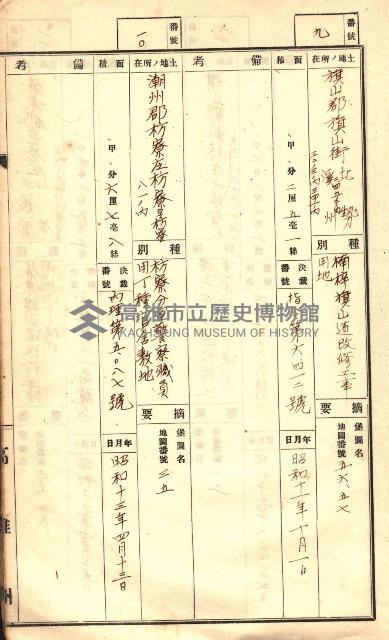 番號
九
土地ノ所在
旗山郡旗山街北勢
面積
甲、分二厘五毫一絲
備考
種別
楠梓旗山道改修工事
用地
決裁番號
第六四二號
摘要
堡圖名
地圖番號 五六、五七
年月日
昭和十一年十月一日
番號
一〇
土地ノ所在
潮州郡枋寮庄枋寮字枋寮
八一ノ内
面積
甲、分六厘七毫八絲
備考
種別
枋寮分室警察職員
用丁種宿舍敷地
決裁番號
内理第五〇八七號
摘要
堡圖名
地圖番號 三五
年月日
昭和十三年四月十三日
高雄州
高雄市立歷史博物館
KAOHSIUNG MUSEUM OF HISTORY